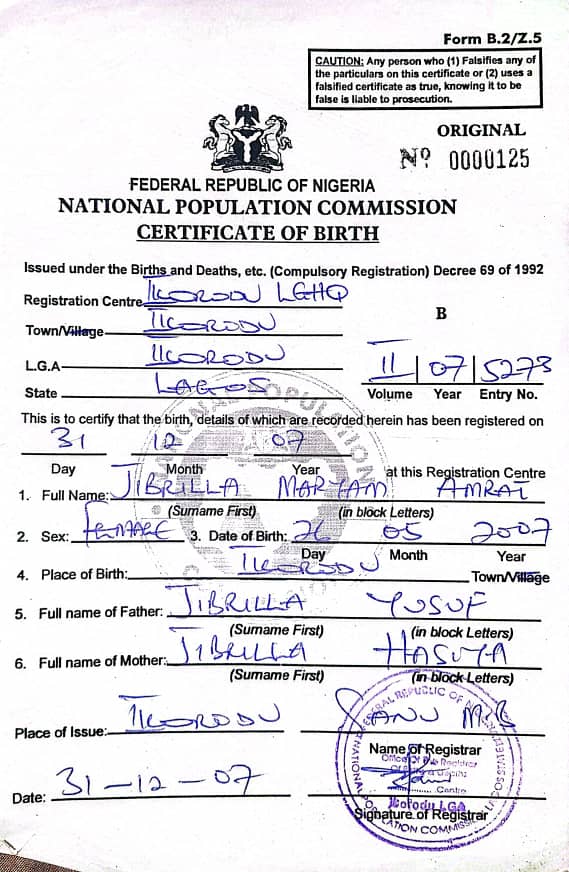 Form B.2/Z.5
CAUTION: Any person who (1) Falsifies any of
the particulars on this certificate or (2) uses a
falsified certificate as true, knowing it to be
false is liable to prosecution.
ORIGINAL
Nº 0000125
FEDERAL REPUBLIC OF NIGERIA
NATIONAL POPULATION COMMISSION
CERTIFICATE OF BIRTH
Issued under the Births and Deaths, etc. (Compulsory Registration) Decree 69 of 1992
Registration Centre IKORODU LGHQ
B
Town/Village IKORODU
L.G.A IKORODU
II 07 5273
State LAGOS
Volume Year Entry No.
This is to certify that the birth, details of which are recorded herein has been registered on
31 12 07
Day Month Year at this Registration Centre
1. Full Name: JIBRILLA MARYAM AMRAI
(Surname First) (in block Letters)
2. Sex: FEMALE 3. Date of Birth: 26 05 2007
Day Month Year
4. Place of Birth: IKORODU Town/Village
5. Full name of Father: JIBRILLA YUSUF
(Surname First) (in block Letters)
6. Full name of Mother: JIBRILLA HASUYA
(Surname First) (in block Letters)
Place of Issue: IKORODU SANU M.B
Name of Registrar
Date: 31-12-07
Ikorodu LGA
Signature of Registrar